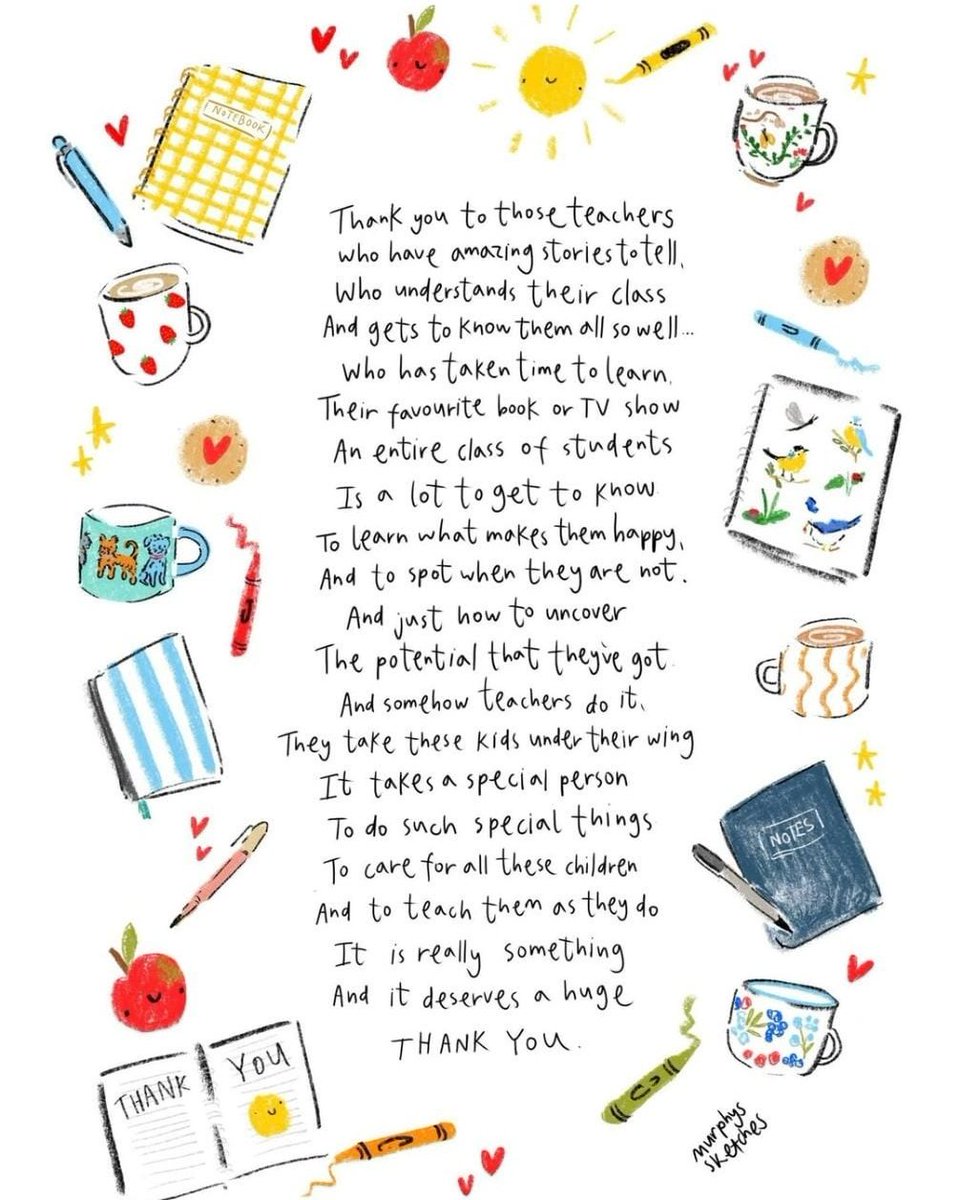 NOTEBOOK
Thank you to those teachers
who have amazing stories to tell,
Who understands their class
And gets to know them all so well...
Who has taken time to learn,
Their favourite book or TV show
An entire class of students
Is a lot to get to know.
To learn what makes them happy,
And to spot when they are not.
And just how to uncover
The potential that they've got.
And somehow teachers do it,
They take these kids under their wing
It takes a special person
To do such special things
To care for all these children
And to teach them as they do
It is really something
And it deserves a huge
THANK YOU.
NOTES
THANK YOU
murphys
sketches